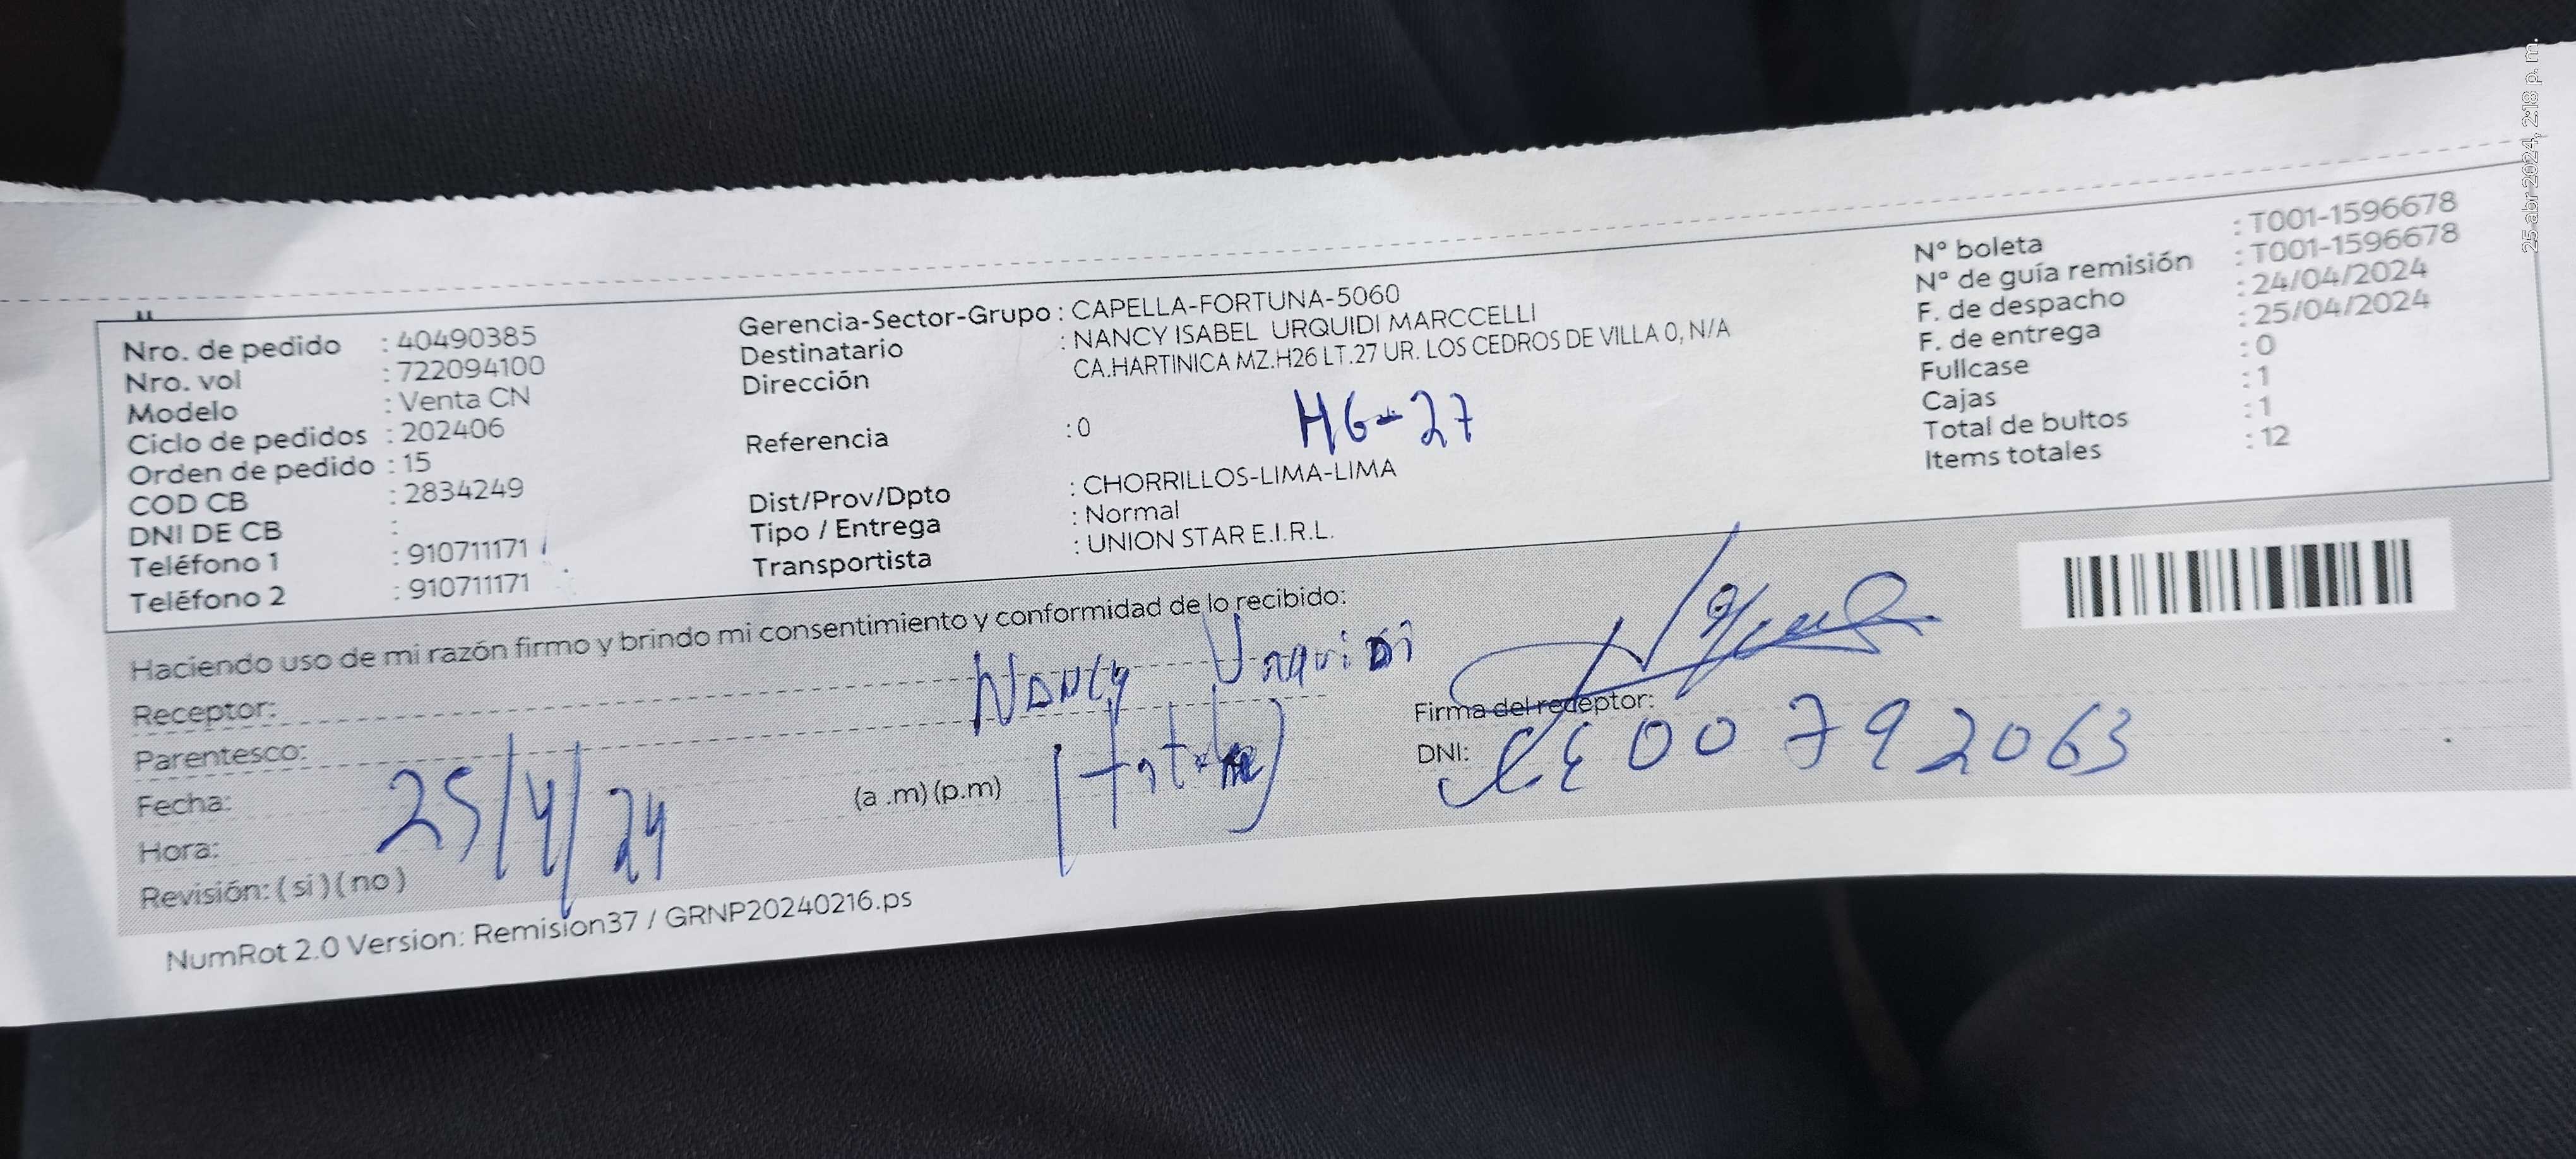 Nro. de pedido : 40490385
Nro. vol : 722094100
Modelo : Venta CN
Ciclo de pedidos : 202406
Orden de pedido : 15
COD CB : 2834249
DNI DE CB :
Teléfono 1 : 910711171
Teléfono 2 : 910711171
Gerencia-Sector-Grupo : CAPELLA-FORTUNA-5060
Destinatario : NANCY ISABEL URQUIDI MARCCELLI
Dirección CA.HARTINICA MZ.H26 LT.27 UR. LOS CEDROS DE VILLA 0, N/A
H6-27
Referencia : 0
Dist/Prov/Dpto : CHORRILLOS-LIMA-LIMA
Tipo / Entrega : Normal
Transportista : UNION STAR E.I.R.L.
N° boleta : T001-1596678
N° de guía remisión : T001-1596678
F. de despacho : 24/04/2024
F. de entrega : 25/04/2024
Fullcase : 0
Cajas : 1
Total de bultos : 1
Items totales : 12
Haciendo uso de mi razón firmo y brindo mi consentimiento y conformidad de lo recibido:
Receptor: Nancy Urquidi
Parentesco:
Fecha: 25/4/24
Hora: (a .m) (p.m)
Revisión: ( si ) ( no )
Firma del receptor:
DNI: CE 00792063
NumRot 2.0 Version: Remision37 / GRNP20240216.ps
25 abr 2024, 2:18 p. m.